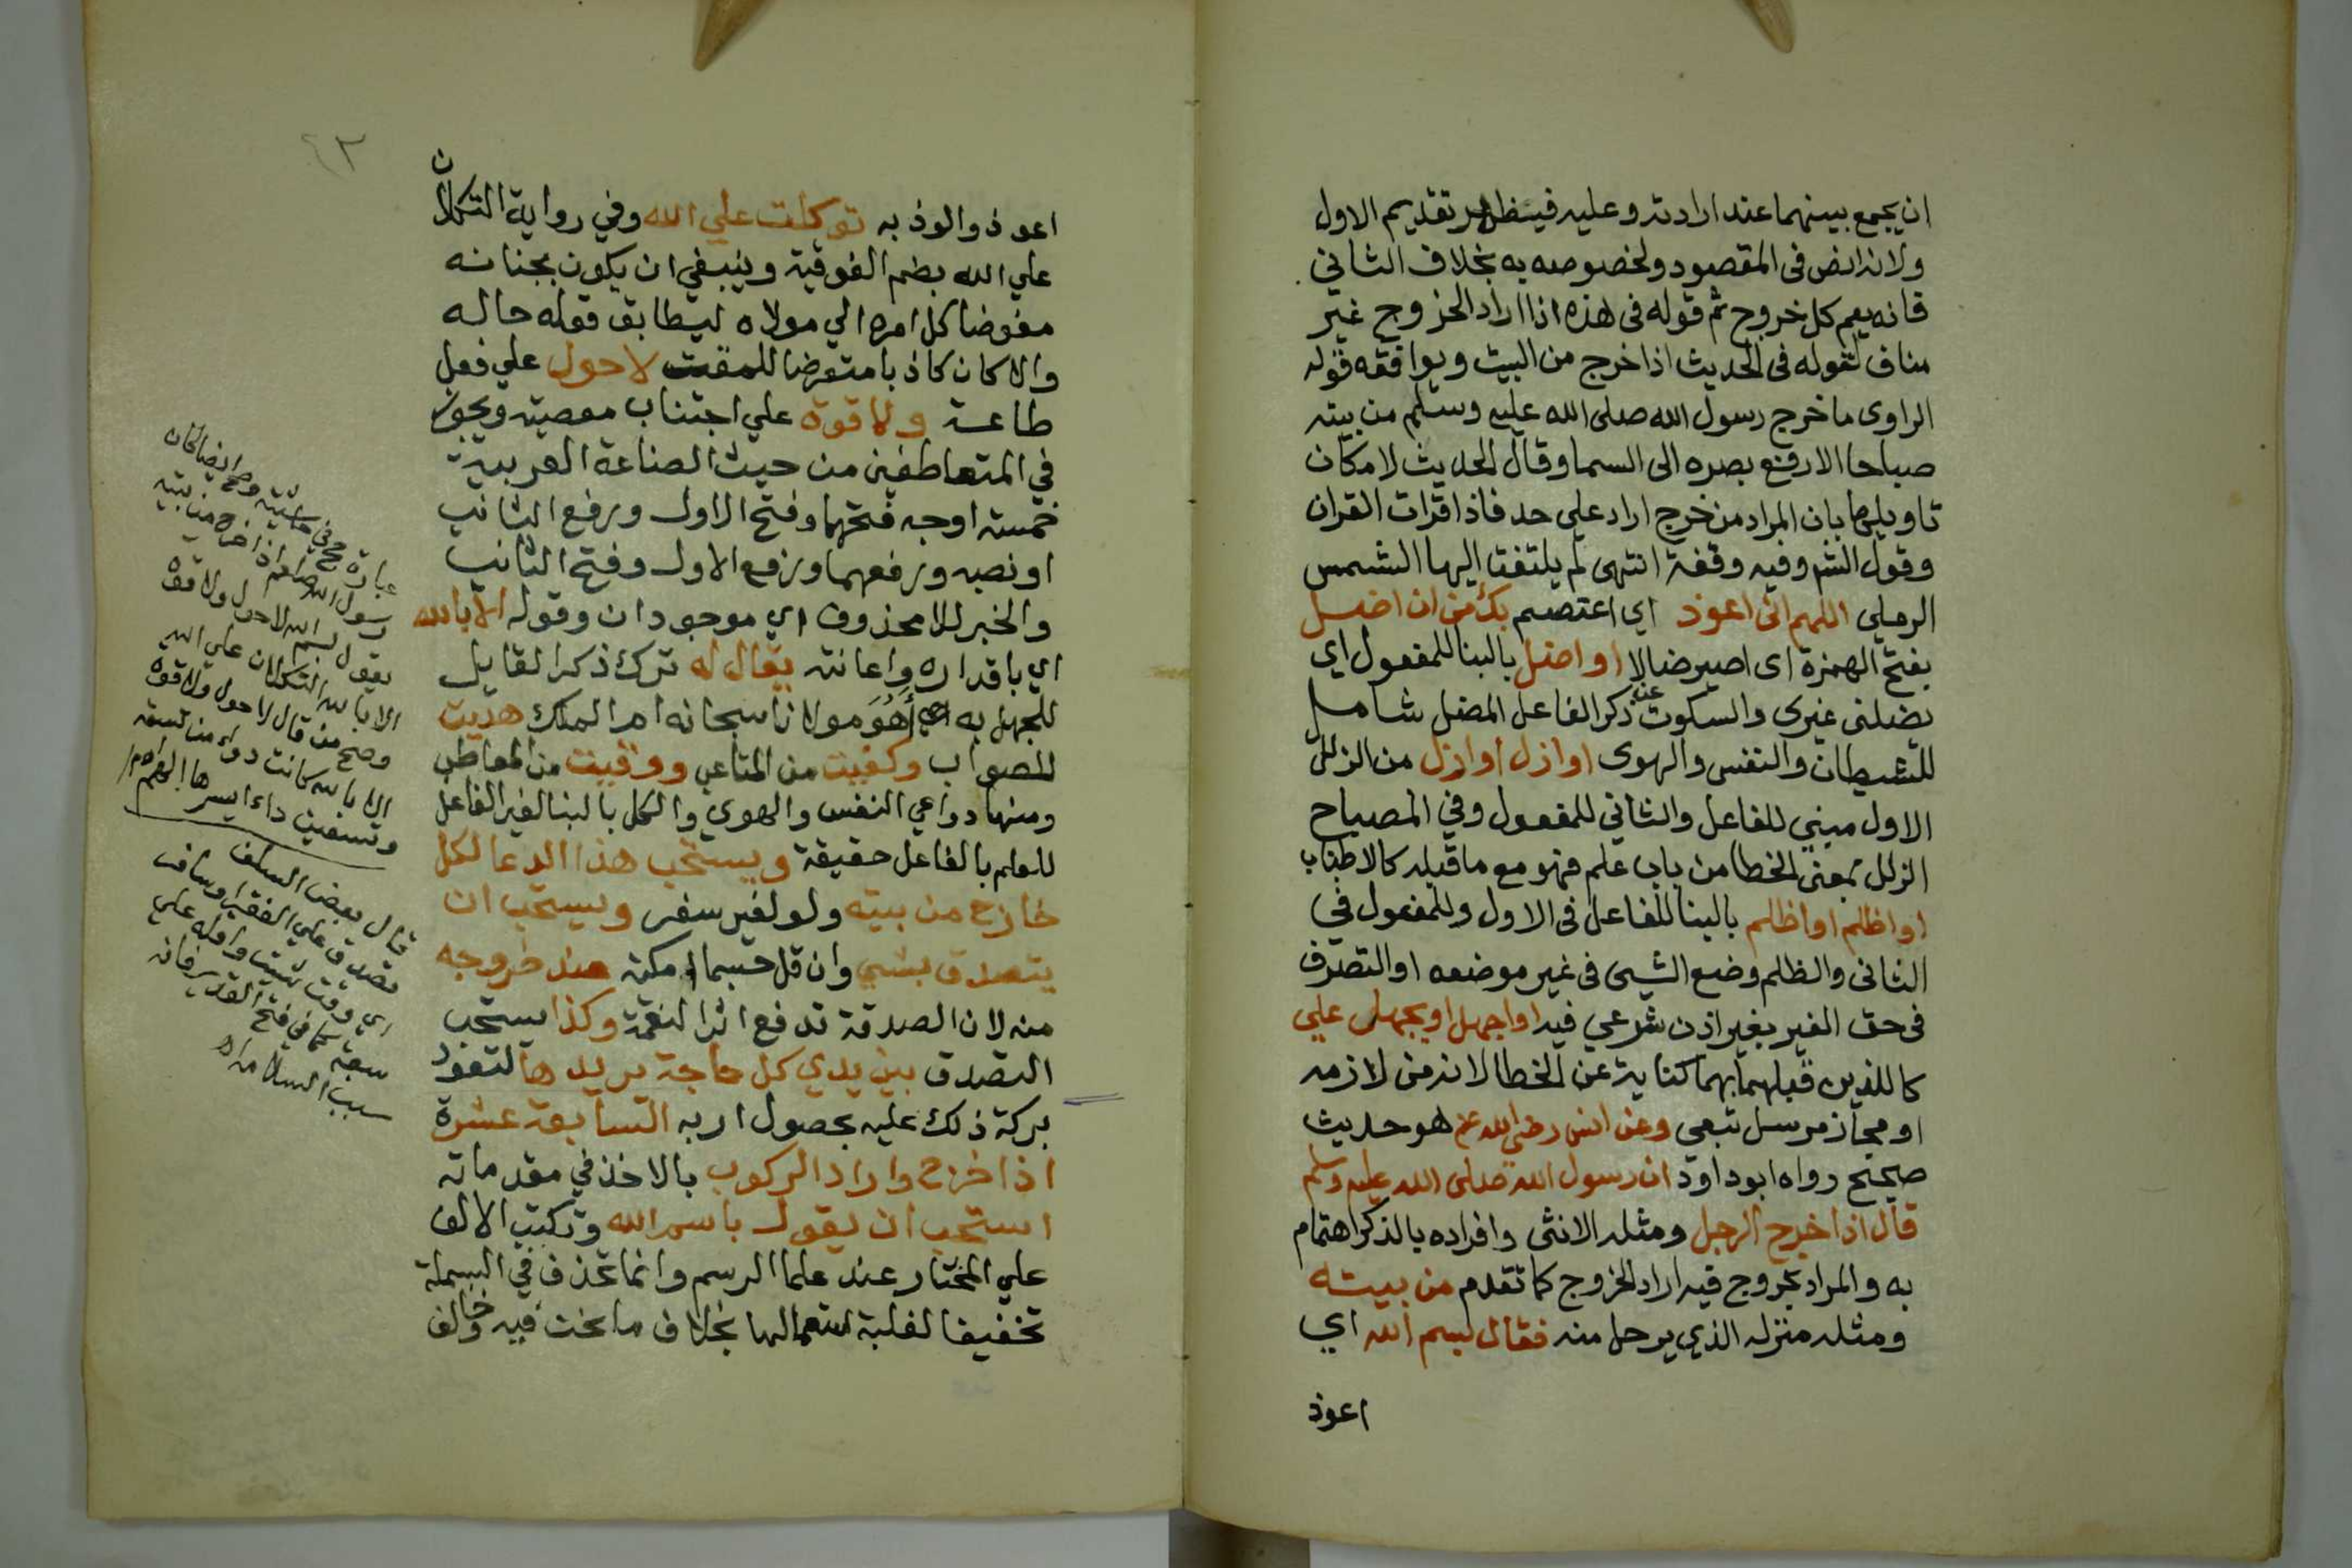 ان يجمع بينهما عند ارادته وعليه فينظر تقديم الاول
ولانه انص فى المقصود ولخصوصه به بخلاف الثاني
فانه يعم كل خروج ثم قوله فى هذه اذا اراد الخروج غير
مناف لقوله فى الحديث اذا خرج من البيت ويوافقه قوله
الراوى ما خرج رسول الله صلى الله عليه وسلم من بيته
صباحا الا رفع بصره الى السما وقال الحديث لامكان
تاويلها بان المراد من خرج اراد على حد فاذا قرات القران
وقول الشر وفيه وقفة انتهى لم يلتفت اليها الشمس
الرملي اللهم انى اعوذ اي اعتصم بك من ان اضل
بفتح الهمزة اى اصير ضالا او اضل بالبنا للمفعول اي
يضلنى غيرى والسكوت عن ذكر الفاعل المضل شامل
للشيطان والنفس والهوى او ازل او ازل من الزلل
الاول مبني للفاعل والثاني للمفعول وفي المصباح
الزلل بمعنى الخطا من باب علم فهو مع ما قبله كالاطناب
او اظلم او اظلم بالبنا للفاعل فى الاول وللمفعول في
الثانى والظلم وضع الشيى فى غير موضعه او التصرف
فى حق الغير بغير اذن شرعي فيه او اجهل او يجهل علي
كاللذين قبلهما بهما كناية عن الخطا لانه من لازمه
او مجاز مرسل تبعي وعن انس رضى الله عنه هو حديث
صحيح رواه ابو داود ان رسول الله صلى الله عليه وسلم
قال اذا خرج الرجل ومثله الانثى وافراده بالذكر اهتمام
به والمراد بخروج فيه اراد الخروج كما تقدم من بيته
ومثله منزله الذي يرحل منه فقال بسم الله اي
اعوذ
٩٣
اعوذ والوذ به توكلت علي الله وفي رواية التكلان
علي الله بضم الفوقية وينبغي ان يكون بجنانه
مفوضا كل امره الي مولاه ليطابق قوله حاله
والا كان كاذبا متعرضا للمقت لا حول علي فعل
طاعة ولا قوة علي اجتناب معصية ويجوز
في المتعاطفين من حيث الصناعة العربية
خمسة اوجه فتحهما وفتح الاول ورفع الثاني
او نصبه ورفعهما ورفع الاول وفتح الثاني
والخبر للا محذوف اي موجودان وقوله الا بالله
اي باقداره واعانته يقال له ترك ذكر القايل
للجهل به اي أهُوَ مولانا سبحانه ام الملك هديت
للصواب وكفيت من المتاعب ووقيت من المعاطب
ومنها دواعي النفس والهوي والكل بالبنا لغير الفاعل
للعلم بالفاعل حقيقة ويستحب هذا الدعا لكل
خارج من بيته ولو لغير سفر ويستحب ان
يتصدق بشي وان قل حسبما امكنه عند خروجه
منه لان الصدقة تدفع اثر النقمة وكذا يستحب
التصدق بين يدي كل حاجة يريدها لتعود
بركة ذلك عليه بحصول اربه التسابعة عشرة
اذا خرج واراد الركوب بالاخذ في مقدماته
استحب ان يقول باسم الله وتكتب الالف
علي المختار عند علما الرسم وانما تحذف في البسملة
تخفيفا لغلبة استعمالها بخلاف ما نحن فيه وخالف
رسول الله صلعم اذا خرج من بيته
يقول بسم الله لا حول ولا قوة
الا بالله التكلان علي الله
وصح من قال لا حول ولا قوة
الا بالله كانت دواء من تسعة
وتسعين داء ايسرها الهم اه م ر
قال بعض السلف
تصدق علي الفقير وسافر
اي وقت شيت
سبب السلامة اه